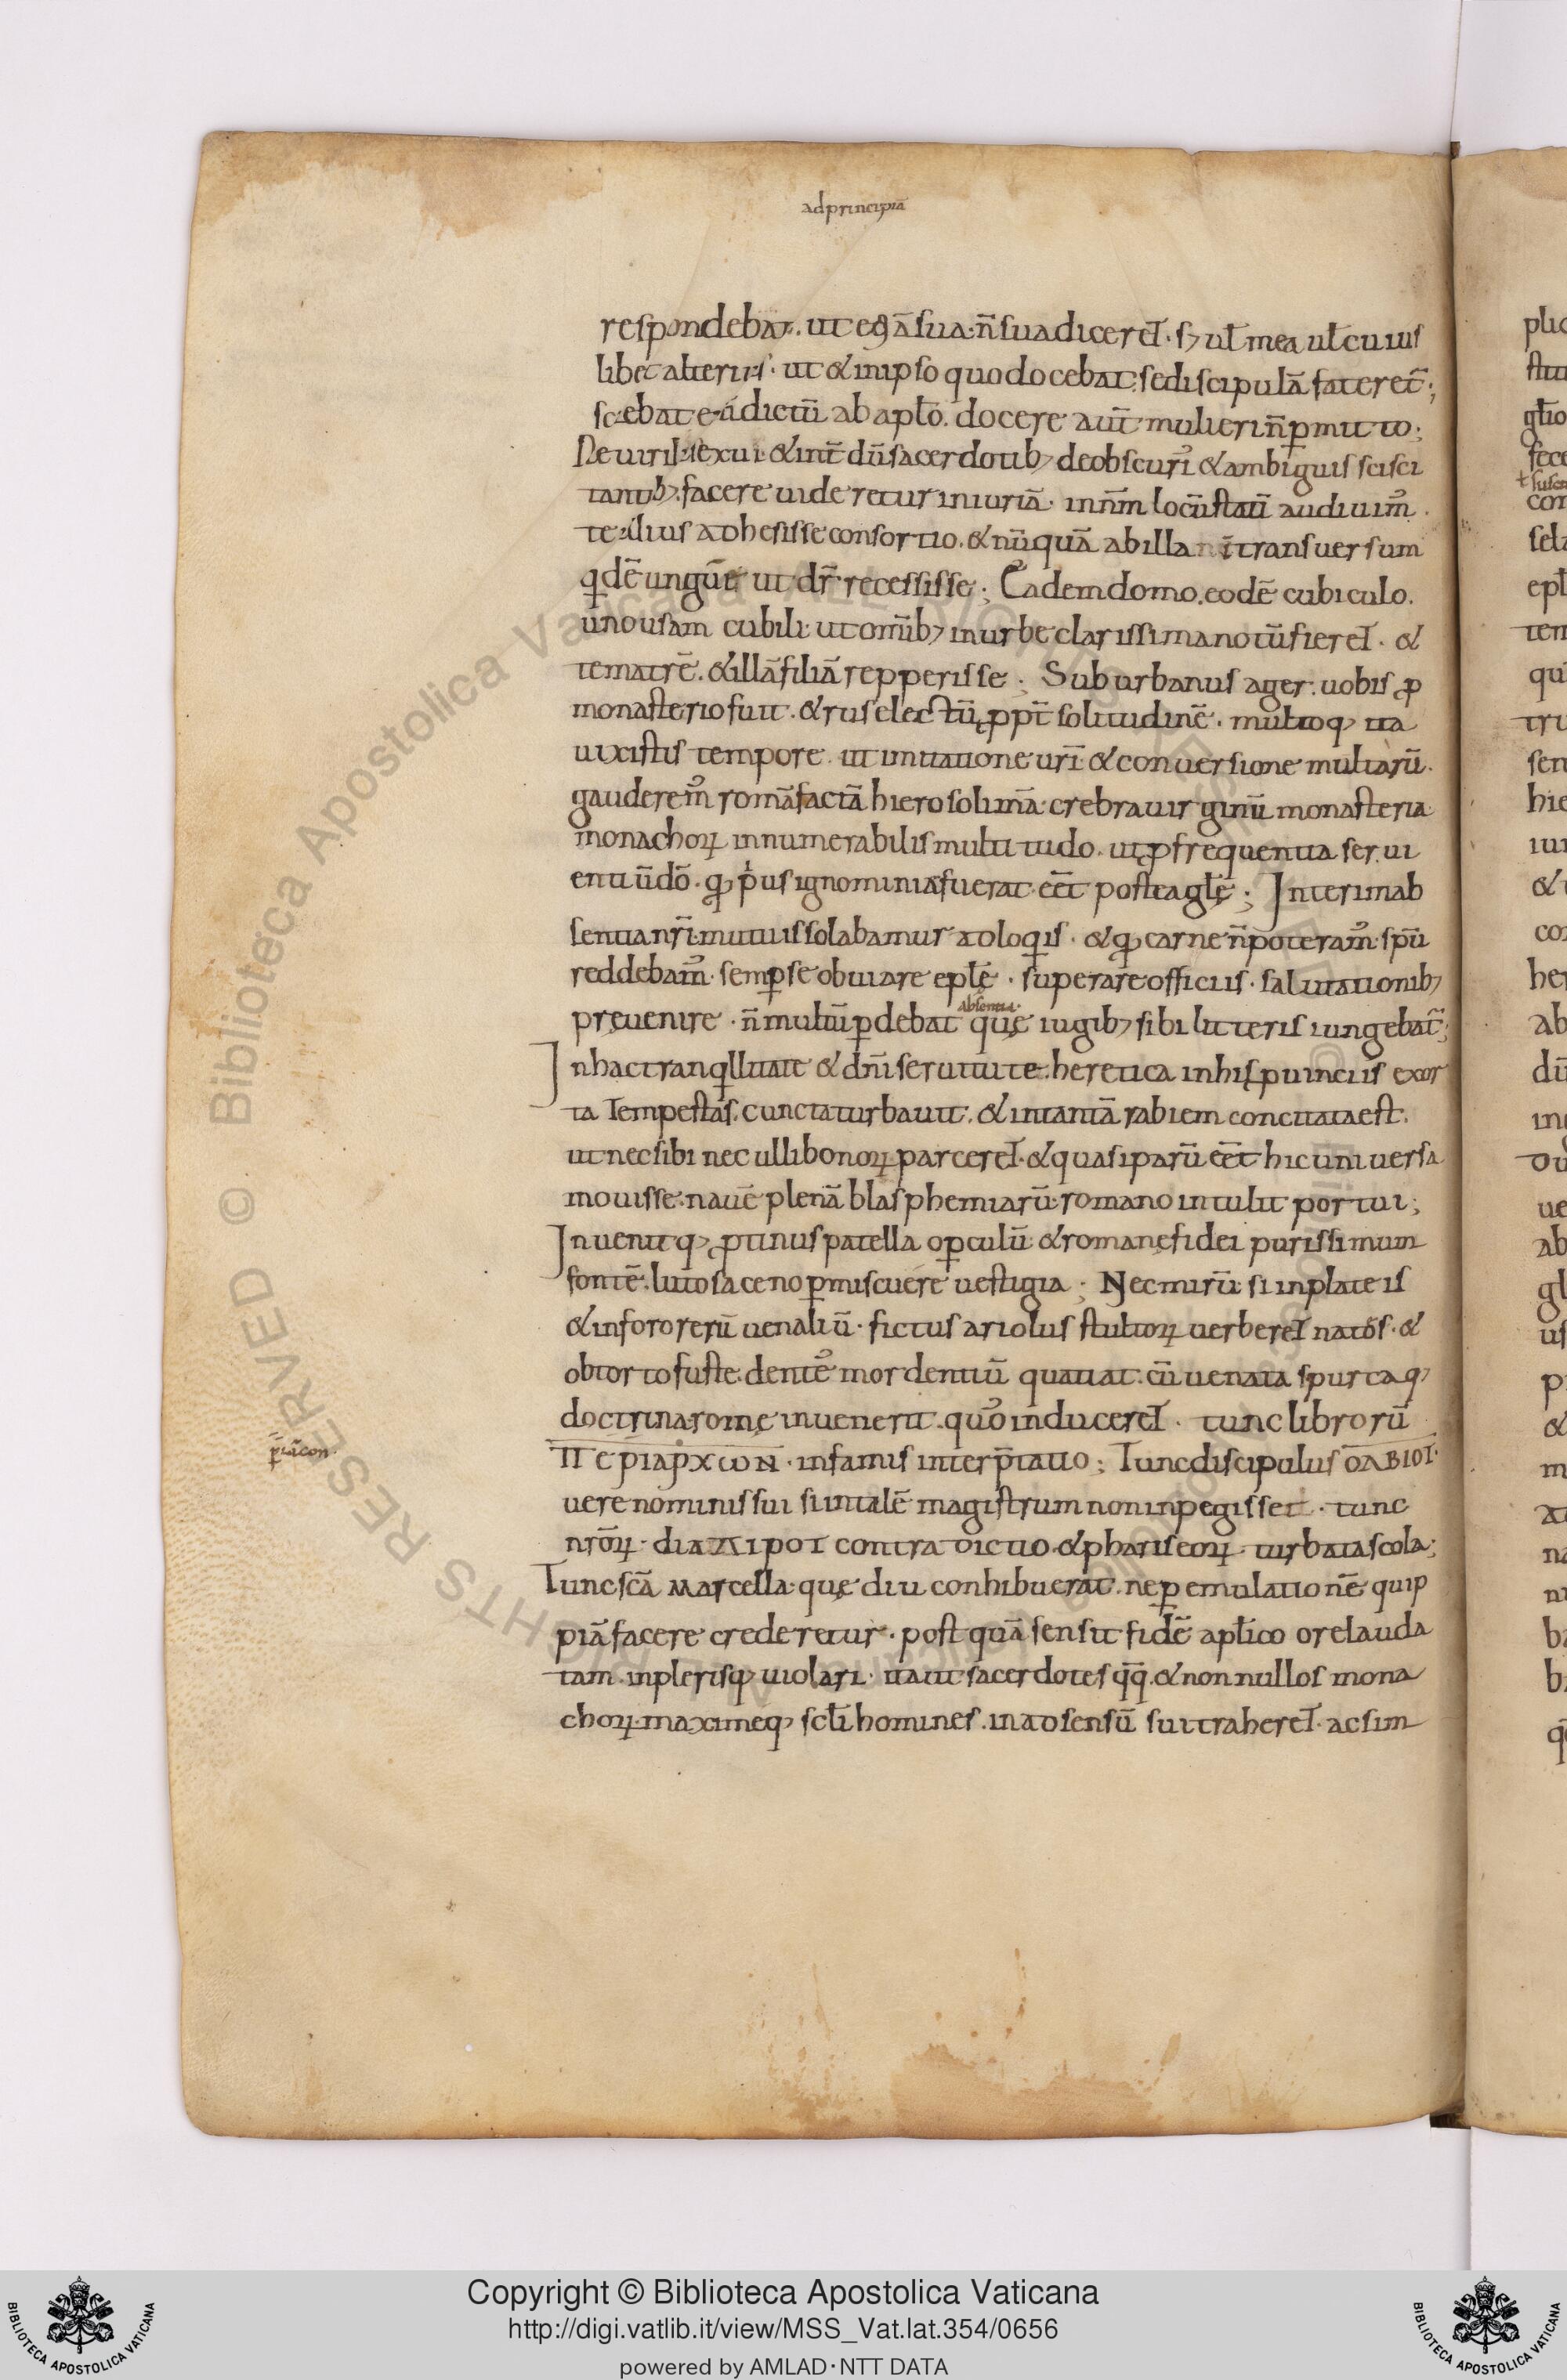 adprincipiā
respondebat. ut eā sua n̄ sua diceret. sʒ ul̄ mea ul̄ cuius
libet alterius. ut & in ipso quo docebat. se discipulā fateret̄;
sciebat eī dictū ab apl̄o. docere aut̄ mulieri n̄ ꝑmitto;
Ne uirili sexui. & int̄dū sacerdotibʒ de obscuri᷒ & ambiguis scisci
tantibʒ. facere uideretur iniuriā. in nr̄m locū statī audiuim᷒.
te illius adhesisse consortio. & nūquā ab illa transuersum
qdē unguē ut dr̄ recessisse; Eadem domo. eodē cubiculo.
uno usam cubili. ut om̄ibʒ in urbe clarissima notū fieret. &
te matrē. & illā filiā repperisse; Suburbanus ager. uobis ꝓ
monasterio fuit. & rus electū ꝓpt̄ solitudinē. multoqʒ ita
uixistis tempore. ut imitatione ur̄i & conuersione multarū.
gauderem᷒ romā factā hierosolimā. crebra uirginū monasteria
monachoꝝ innumerabilis multitudo. ut ꝓ frequentia serui
entiū dō. qꝫ p̓us ignominia fuerat. eēt postea gl̄ę; Interim ab
sentia nr̄i. mutuis solabamur adloqis. & qꝫ carne n̄ poteram᷒. spū
reddebam᷒. semꝑ se obuiare epl̄ę. superare officiis. salutationibʒ
pręuenire. n̄ multū ꝑdebat absentia. quę iugibʒ sibi litteris iungebat̄;
In hac tranqllitate & dn̄i seruitute. heretica in his ꝓuinciis exor
ta tempestas. cuncta turbauit. & in tantā rabiem concitata est.
ut nec sibi nec ulli bonoꝝ parceret. & quasi parū eēt hic uniuersa
mouisse. nauē plenā blasphemiarū. romano intulit portui;
Inuenitqʒ ꝓtinus patella oꝑculū. & romanę fidei purissimum
fontē. lutosa ceno ꝑmiscuere uestigia; Nec mirū. si in plateis
& in foro rerū uenaliū. fictus ariolus stultoꝝ uerberet natos. &
obtorto fuste. dente᷒ mordentiū quatiat. cū uenata spurcaqʒ
doctrina. romę inuenerit. quo᷒ induceret. tunc librorū
p̄iār̄con.
περιαρχωΝ. infamis interp̄tatio; Tunc discipulus ΟΛΒΙΟΙ.
uere nominis sui si in talē magistrum non inpegisset. tunc
nr̄oꝝ. διαΠιροι contradictio. & phariseoꝝ. turbata scola;
Tunc sc̄a marcella. quę diu conhibuerat. ne ꝑ emulationē quip
piā facere crederetur. post quā sensit fidē apl̄ico ore lauda
tam. in plerisqʒ uiolari. ita ut sacerdotes qq̄. & non nullos mona
choꝝ. maximeqʒ scl̄i homines. in adsensū sui traheret. ac sim
Copyright © Biblioteca Apostolica Vaticana
http://digi.vatlib.it/view/MSS_Vat.lat.354/0656
powered by AMLAD·NTT DATA